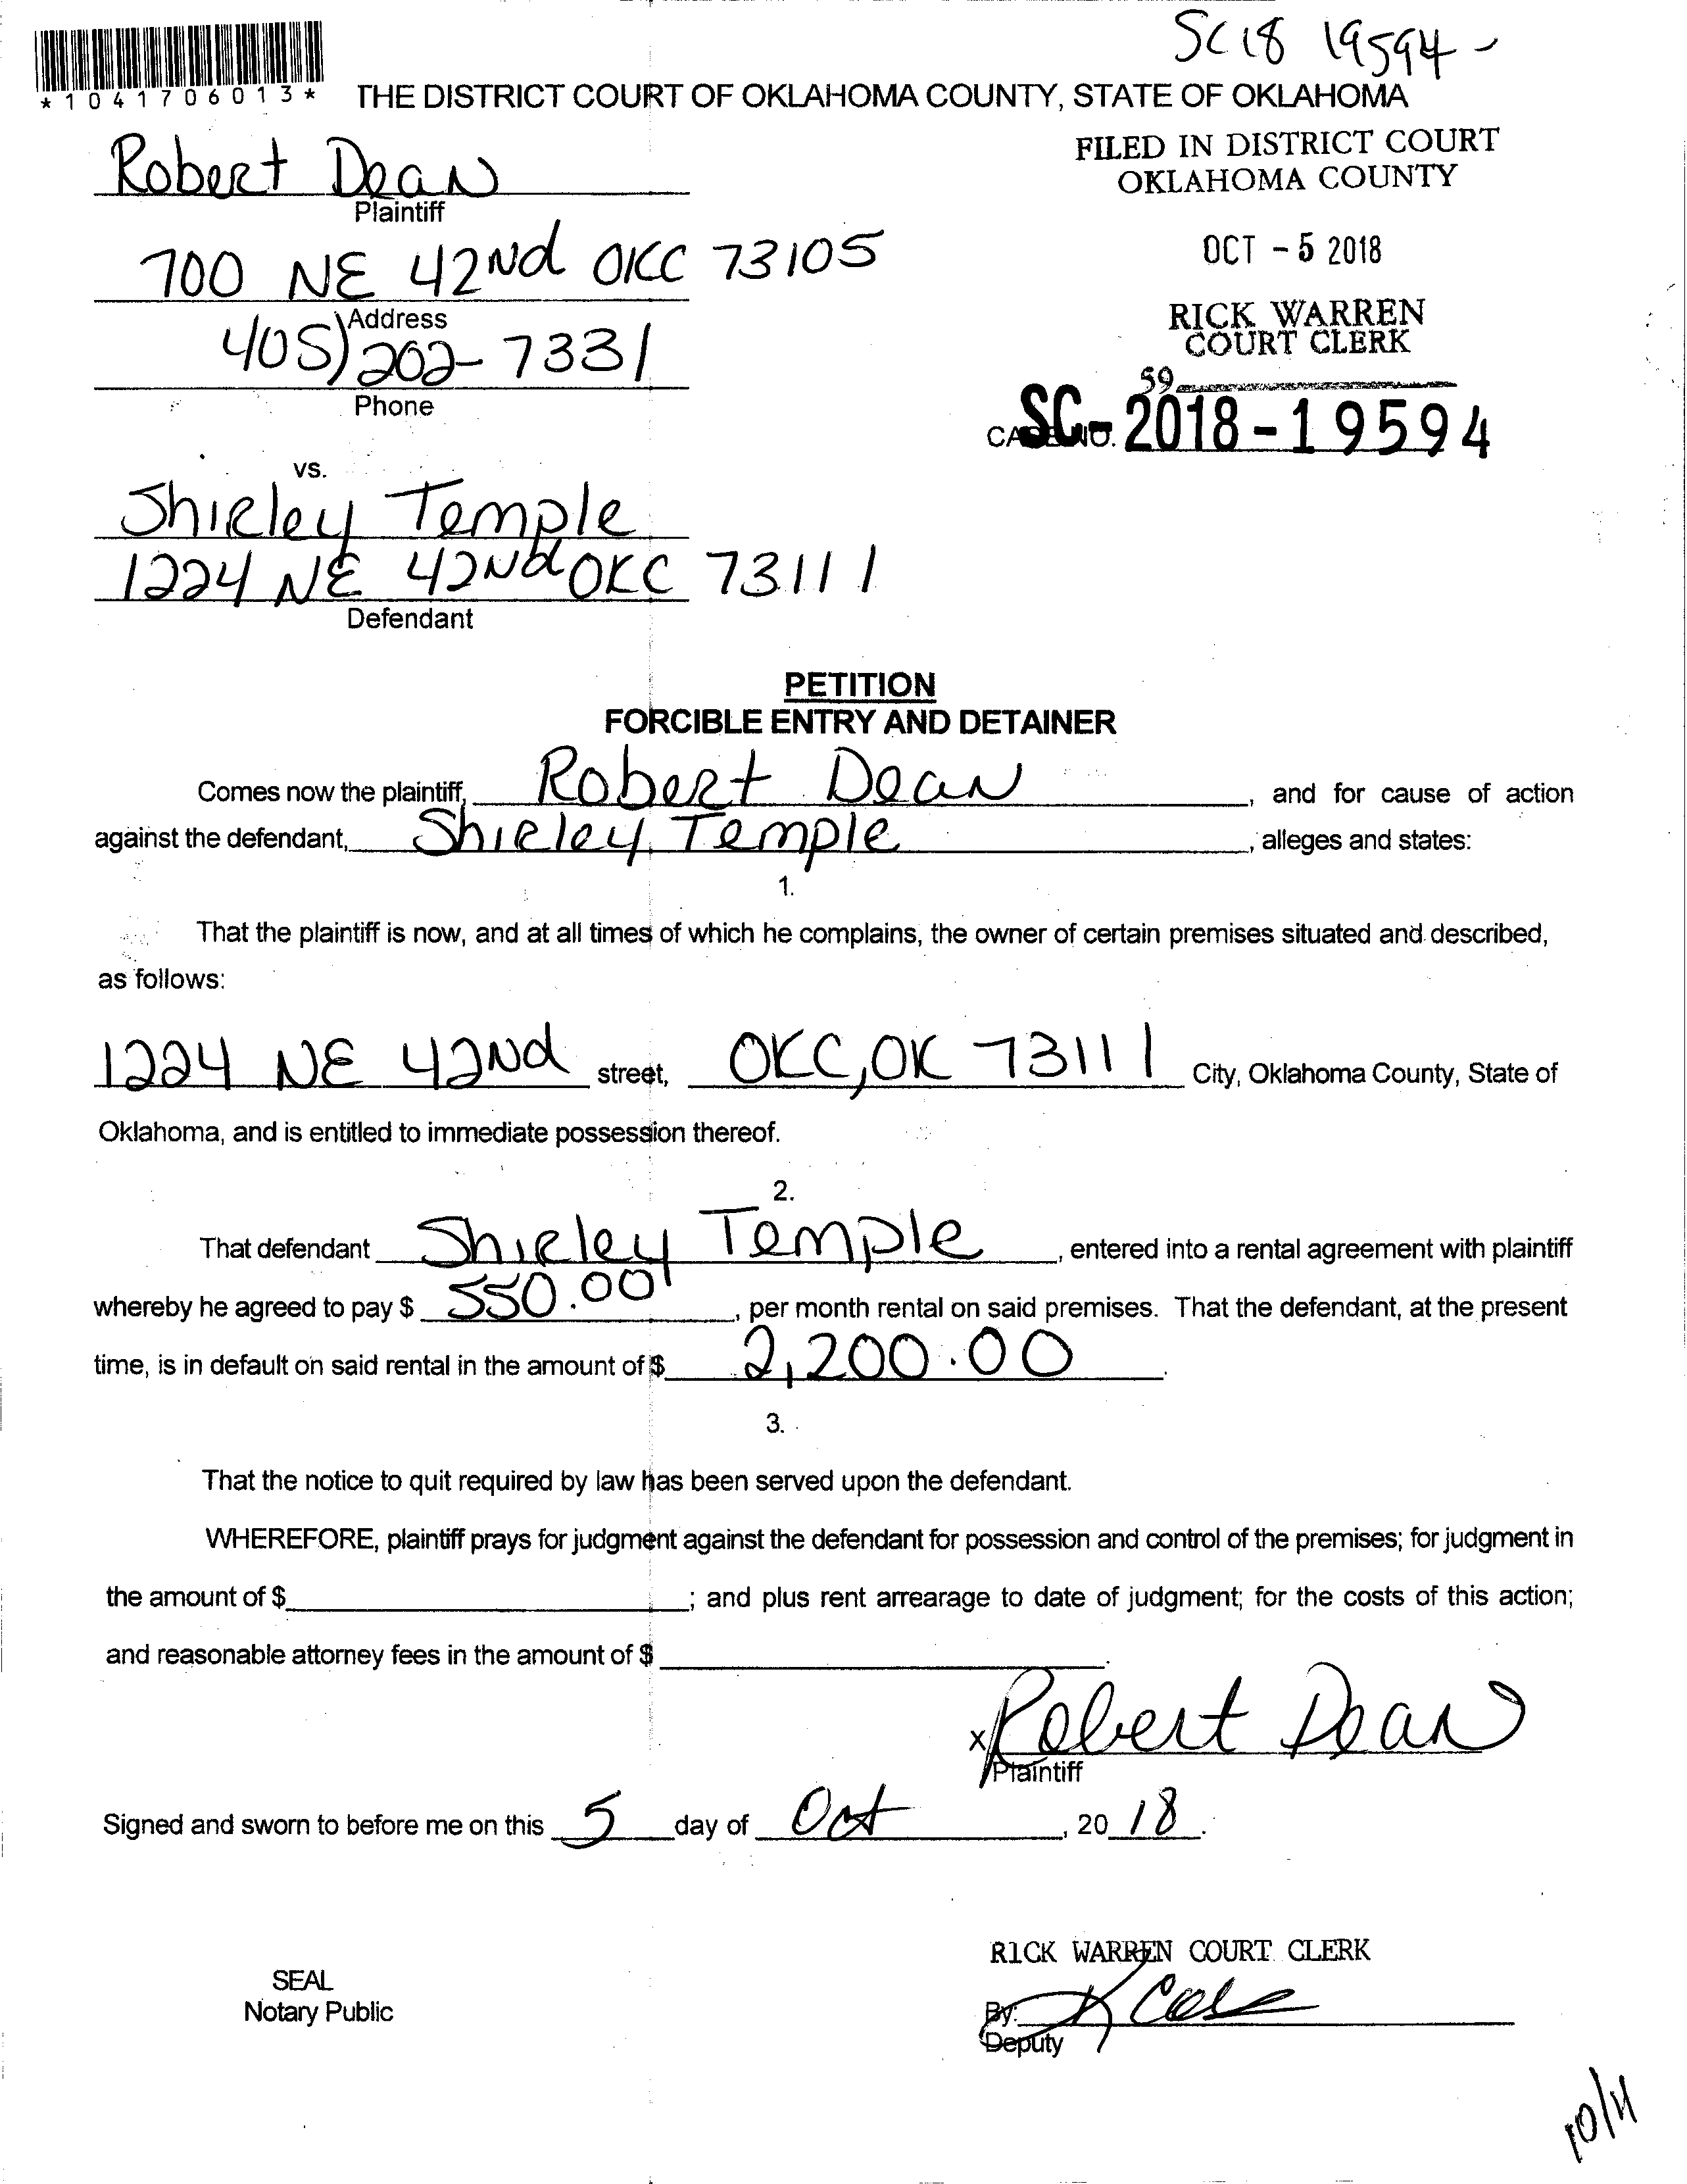 SC18 19594-
*1041706013*
THE DISTRICT COURT OF OKLAHOMA COUNTY, STATE OF OKLAHOMA
FILED IN DISTRICT COURT
OKLAHOMA COUNTY
Robert Dean
Plaintiff
700 NE 42nd OKC 73105
Address
OCT - 5 2018
405) 202-7331
Phone
RICK WARREN
COURT CLERK
59
CASE NO. SC-2018-19594
vs.
Shirley Temple
1224 NE 42nd OKC 73111
Defendant
PETITION
FORCIBLE ENTRY AND DETAINER
Comes now the plaintiff, Robert Dean, and for cause of action
against the defendant, Shirley Temple, alleges and states:
1.
That the plaintiff is now, and at all times of which he complains, the owner of certain premises situated and described,
as follows:
1224 NE 42nd street, OKC, OK 73111 City, Oklahoma County, State of
Oklahoma, and is entitled to immediate possession thereof.
2.
That defendant Shirley Temple, entered into a rental agreement with plaintiff
whereby he agreed to pay $ 550.00, per month rental on said premises. That the defendant, at the present
time, is in default on said rental in the amount of $ 2,200.00.
3.
That the notice to quit required by law has been served upon the defendant.
WHEREFORE, plaintiff prays for judgment against the defendant for possession and control of the premises; for judgment in
the amount of $ ; and plus rent arrearage to date of judgment; for the costs of this action;
and reasonable attorney fees in the amount of $ .
x Robert Dean
Plaintiff
Signed and sworn to before me on this 5 day of Oct, 20 18.
RICK WARREN COURT CLERK
SEAL
Notary Public
By:
Deputy
10/11